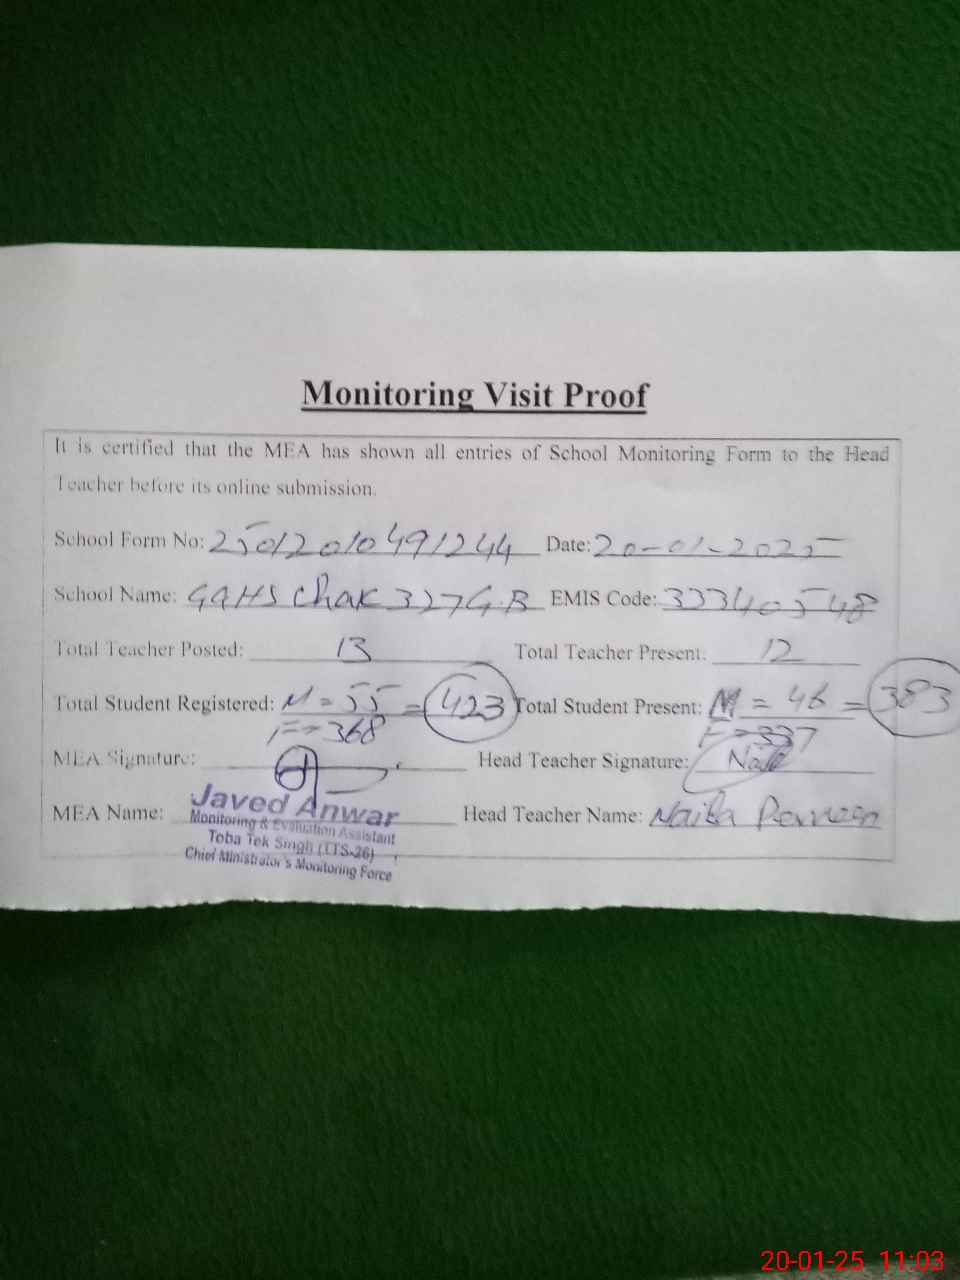 Monitoring Visit Proof
It is certified that the MEA has shown all entries of School Monitoring Form to the Head
Teacher before its online submission.
School Form No: 25012010491244 Date: 20-01-2025
School Name: GGHS Chak 327 G.B EMIS Code: 33340548
Total Teacher Posted: 13 Total Teacher Present: 12
Total Student Registered: M = 55 = 423 Total Student Present: M = 46 = 383
F = 368 F = 337
MEA Signature: Head Teacher Signature:
MEA Name: Javed Anwar Head Teacher Name: Naila Parveen
Monitoring & Evaluation Assistant
Toba Tek Singh (TTS-26)
Chief Ministrator's Monitoring Force
20-01-25 11:03